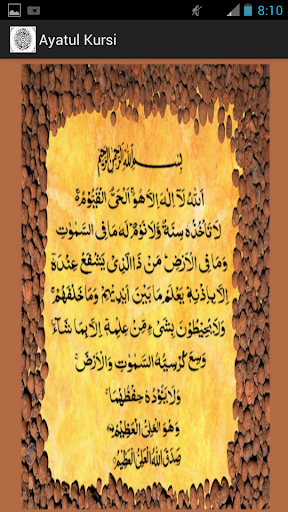 8:10
Ayatul Kursi
بِسْمِ اللّٰهِ الرَّحْمٰنِ الرَّحِيْمِ
اَللّٰهُ لَآ اِلٰهَ اِلَّا هُوَ ۚ اَلْحَيُّ الْقَيُّوْمُ ۚ
لَا تَاْخُذُهٗ سِنَةٌ وَّلَا نَوْمٌ ؕ لَهٗ مَا فِي السَّمٰوٰتِ
وَمَا فِي الْاَرْضِ ؕ مَنْ ذَا الَّذِيْ يَشْفَعُ عِنْدَهٗٓ
اِلَّا بِاِذْنِهٖ ؕ يَعْلَمُ مَا بَيْنَ اَيْدِيْهِمْ وَمَا خَلْفَهُمْ ۚ
وَلَا يُحِيْطُوْنَ بِشَيْءٍ مِّنْ عِلْمِهٖٓ اِلَّا بِمَا شَآءَ ۚ
وَسِعَ كُرْسِيُّهُ السَّمٰوٰتِ وَالْاَرْضَ ۚ
وَلَا يَـُٔوْدُهٗ حِفْظُهُمَا ۚ
وَهُوَ الْعَلِيُّ الْعَظِيْمُ
صَدَقَ اللّٰهُ الْعَلِيُّ الْعَظِيْمُ